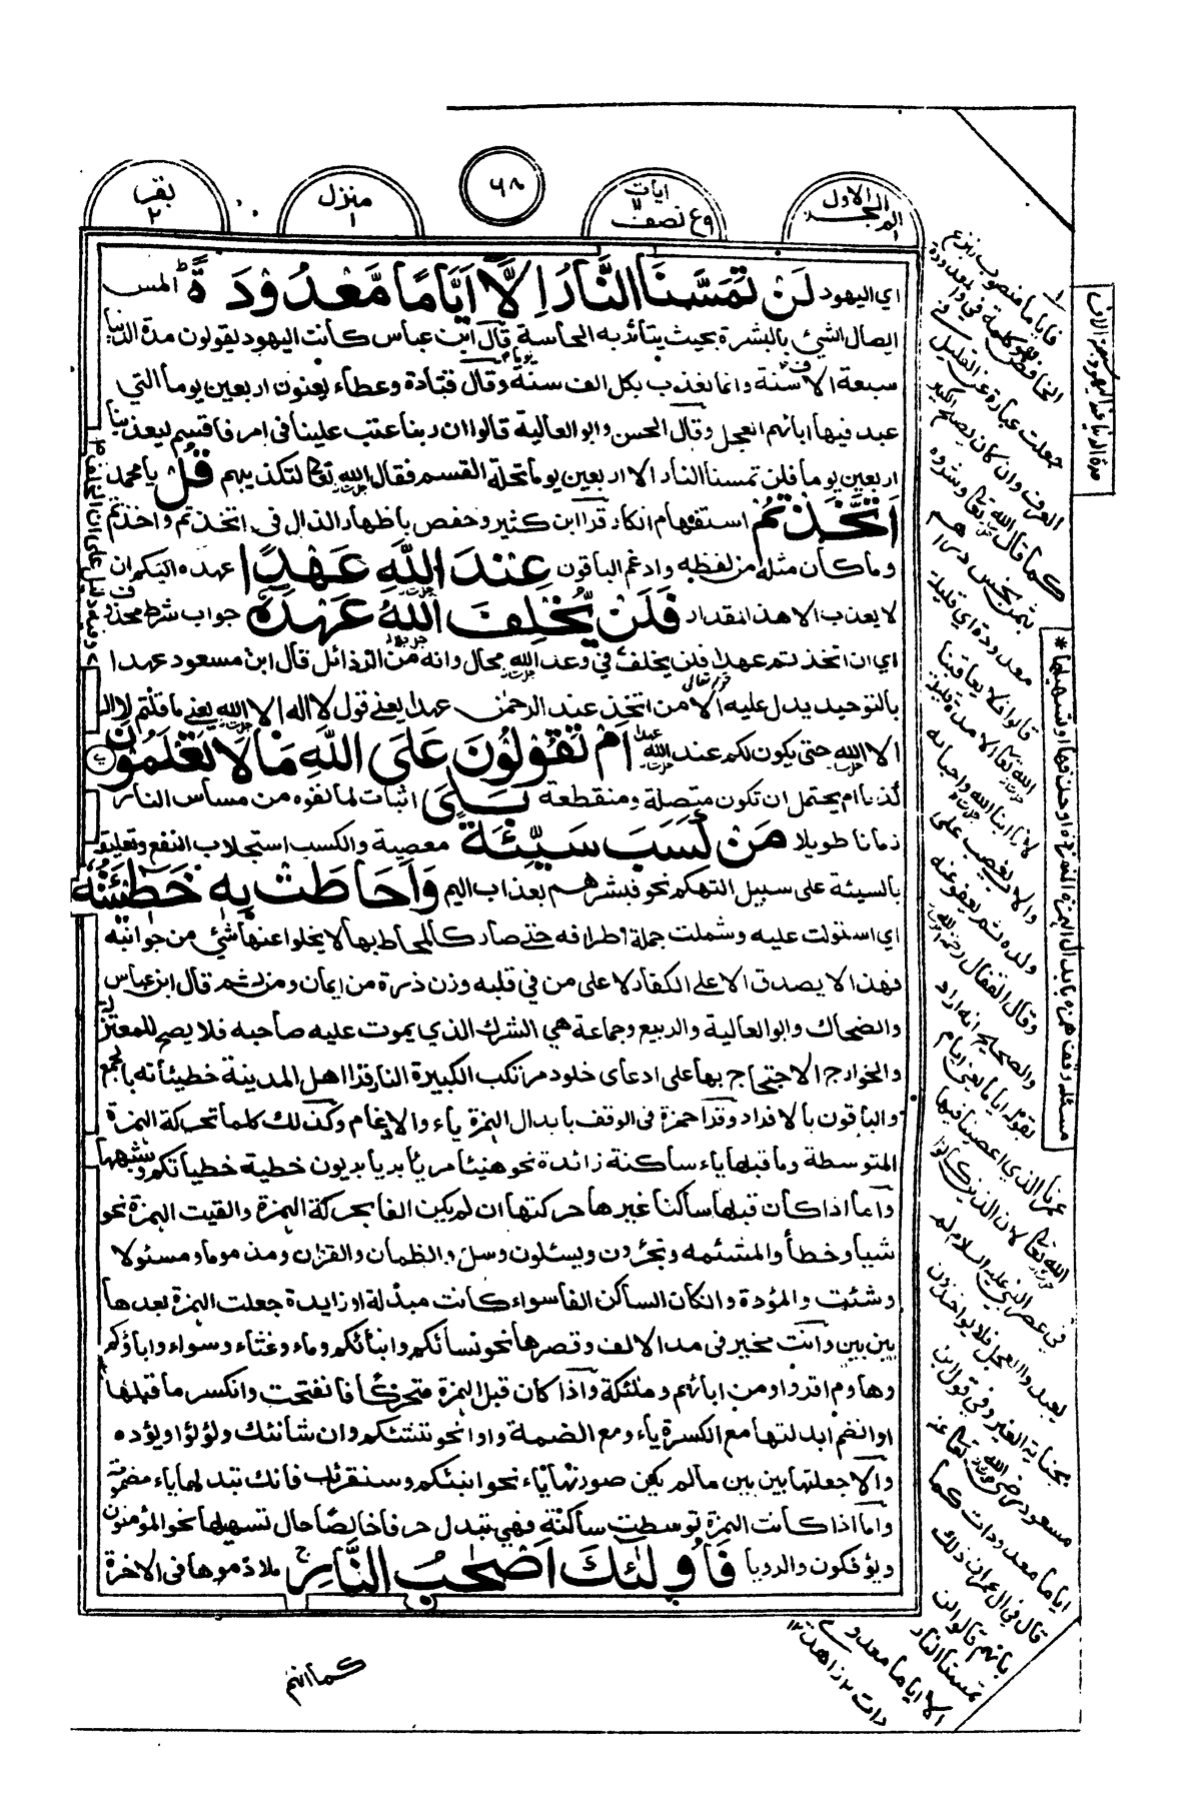 المجلد الاول
ايات
وع نصف ١١
٦٨
منزل
١
بقر
٢
اي اليهود لَنْ تَمَسَّنَا النَّارُ اِلَّا اَيَّامًا مَّعْدُوْدَةً المس
ايصال الشئ بالبشرة بحيث يتأثر به الحاسة قال ابن عباس كانت اليهود يقولون مدة الدنيا
سبعة الاف سنة وانما نعذب بكل الف سنة يوما وقال قتادة وعطاء يعنون اربعين يوما التي
عبد فيها ابائهم العجل وقال الحسن وابو العالية قالوا ان ربنا عتب علينا في امر فاقسم ليعذبنا
اربعين يوما فلن تمسنا النار الا اربعين يوما تحلة القسم فقال الله تعالى لتكذيبهم قُلْ يا محمد
اَتَّخَذْتُمْ استفهام انكار قرا ابن كثير وحفص باظهار الذال في اتخذتم واخذتم
وما كان مثله من لفظه وادغم الباقون عِنْدَ اللّٰهِ عَهْدًا عهده اليكم ان
لا يعذب الا هذا المقدار فَلَنْ يُّخْلِفَ اللّٰهُ عَهْدَهٗ جواب شرط محذوف
اي ان اتخذتم عهدا فلن يخلف في وعد الله محال وانه من الرذائل قال ابن مسعود عهدا
بالتوحيد يدل عليه الا من اتخذ عند الرحمن عهدا يعني قول لا اله الا الله يعني ما قلتم لا اله
الا الله حتى يكون لكم عند الله عهدا اَمْ تَقُوْلُوْنَ عَلَى اللّٰهِ مَا لَا تَعْلَمُوْنَ
كذبا ام يحتمل ان تكون متصلة ومنقطعة بَلٰى اثبات لما نفوه من مساس النار
زمانا طويلا مَنْ كَسَبَ سَيِّئَةً معصية والكسب استجلاب النفع وتعليقه
بالسيئة على سبيل التهكم نحو فبشرهم بعذاب اليم وَّاَحَاطَتْ بِهٖ خَطِيْٓئَتُهٗ
اي استولت عليه وشملت جملة اطرافه حتى صار كالمحاط بها لا يخلوا عنها شئ من جوانبه
فهذا الا يصدق الا على الكفار لا على من في قلبه وزن ذرة من ايمان ومن ثم قال ابن عباس
والضحاك وابو العالية والربيع وجماعة هي الشرك الذي يموت عليه صاحبه فلا يصح للمعتزلة
والخوارج الاحتجاج بها على ادعاى خلود مرتكب الكبيرة النار قرا اهل المدينة خطيئاته بالجمع
والباقون بالافراد وقرا حمزة في الوقف بابدال الهمزة ياء والادغام وكذلك كلما تحركة الهمزة
المتوسطة وما قبلها ياء ساكنة زائدة نحو هنيئا مريئا بريا بريون خطية خطياتكم وشبهها
واما اذا كان قبلها ساكنا غيرها حركتها ان لم يكن الفا بحركة الهمزة والقيت الهمزة نحو
شيا وخطأ والمشئمه وتجئرون ويسئلون وسل والظمان والقران ومذموما ومسئولا
وشئت والمؤدة وان كان الساكن الفا سواء كانت مبدلة او زايدة جعلت الهمزة بعدها
بين بين وانت مخير في مد الالف وقصرها نحو نسائكم وابنائكم وماء وغثاء وسواء واباؤكم
وهاوم اقرءوا ومن ابائهم وملئكة واذا كان قبل الهمزة متحركا فانفتحت وانكسر ما قبلها
او انضم ابدلتها مع الكسرة ياء ومع الضمة واوا نحو ننشئكم وان شانئك ولؤلؤا ويؤده
والا جعلتها بين بين مالم يكن صورتها ياء نحو انبئكم وسنقرئك فانك تبدلها ياء مضمومة
واما اذا كانت الهمزة توسطت ساكنة فهي تبدل حرفا خالصا حال تسهيلها نحو المؤمنون
ويؤفكون والرويا فَاُولٰٓئِكَ اَصْحٰبُ النَّارِ ملازموها في الاخرة
كما انهم
وفيه دليل على ان الخلف
مدة الدنيا عند اليهود سبعة الاف
مسئله وقف همزه بابدال الهمزة
فاياما منصوب بنزع
الخافض
جعلت عبارة عن القليل
العرف وان كان يصلح للكثير
كما قال الله تعالى وشروه
بثمن بخس دراهم
معدودة اي قليلة
قالوا فلا يعاقبنا
الله تعالى الا مدة قليلة
لانا ابناء الله واحباؤه
والاب يغضب على
ولده ثم يعفو عنه
وقال القفال رحمه الله
والصحيح انه اراد
بقوله اياما يعني ايام
عمرنا الذي اعصينا فيها
الله تعالى لان الذين كانوا
في عصر النبي عليه السلام لم
يعبدوا العجل فلا يواخذون
بجناية الغير وفي قول ابن
مسعود رضي الله تعالى عنه
اياما معدودات كما
قال في ال عمران ذلك
بانهم قالوا لن
تمسنا النار
الا اياما معدو
دات ١٢ زاهدى